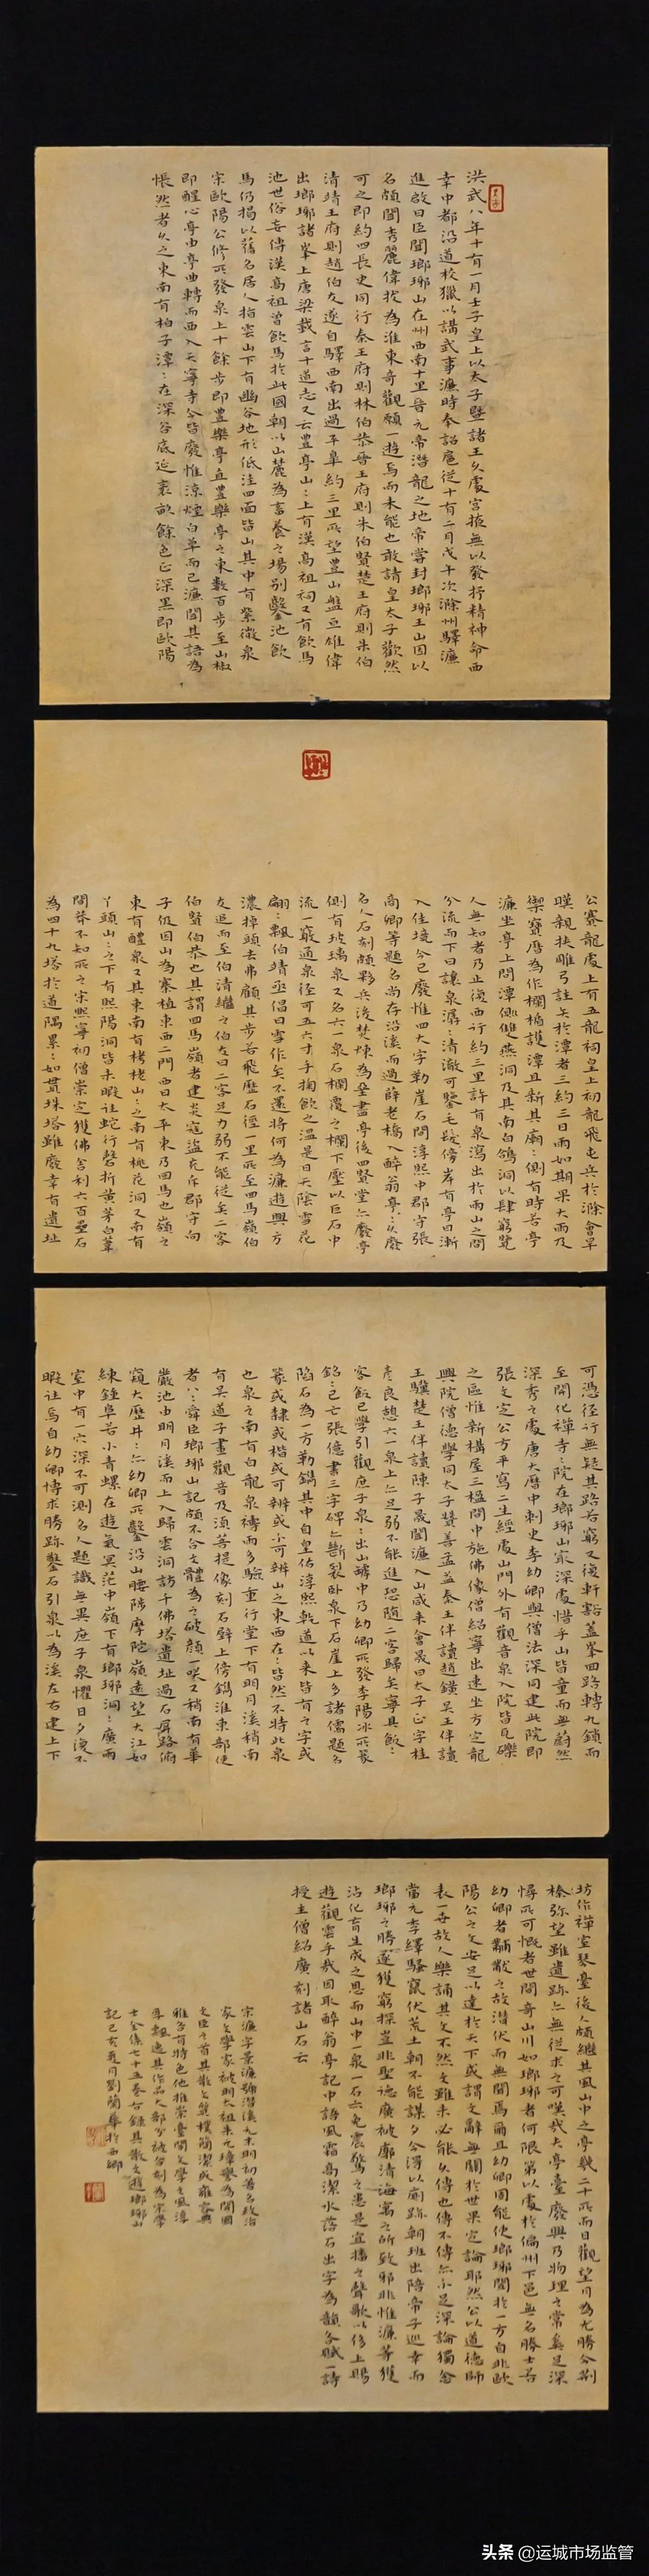 洪武八年十有一月壬子皇上以太子暨諸王久處宮掖無以發抒精神命西
幸中都沿道校獵以講武事濂時奉詔扈從十有二月戊午次滁州驛濂
進啟曰臣聞瑯琊山在州西南十里晉元帝潛龍之地帝嘗封瑯琊王山因以
名頗聞秀麗偉拔為淮東奇觀願一遊焉而未能也敢請皇太子歡然
可之即約四長史同行秦王府則林伯恭晉王府則朱伯賢楚王府則朱伯
清靖王府則趙伯友遂自驛西南出過平皋約三里所望豐山盤亘雄偉
出瑯琊諸峯上唐梁載言十道志又云豐亭山:上有漢高祖祠又有飲馬
池世俗妄傳漢高祖曾飲馬於此國朝以山麓為畜養之場別鑿池飲
馬仍揭以舊名居人指雲山下有幽谷地形低洼四面皆山其中有紫微泉
宋歐陽公修所發泉上十餘步即豐樂亭直豐樂亭之東數百步至山椒
即醒心亭由亭曲轉而西入天寧寺今皆廢惟涼煙白草而已濂聞其語為
悵然者久之東南有柏子潭:在深谷底延袤畝餘色正深黑即歐陽
公賽龍處上有五龍祠皇上初龍飛屯兵於滁會旱
暵親挾雕弓註矢於潭者三約三日雨如期果大雨及
御寶曆為作欄楯護潭且新其廟:側有時若亭
濂坐亭上問潭側雙燕洞及其南白鴿洞以肆窮覽
人無知者乃止復西行約三里許有泉瀉出於兩山之間
分流而下曰讓泉潺:清澈可鑒毛髮傍岸有亭曰漸
入佳境今已廢惟四大字勒崖石間淳熙中郡守張
商卿等題名尚存沿溪而過薛老橋入醉翁亭:久廢
名人石刻頗夥兵後焚煉為堊盡亭後四賢堂亦廢亭
側有玻璃泉又名六一泉石欄覆之欄下壓以巨石中
流一竅通泉徑可五六寸手掬飲之溫是日天陰雪花
翩:飄伯靖亟倡曰雪作矣不還將何為濂遊興方
濃掉頭去弗顧其步若飛歷石徑一里所至四馬嶺伯
友追而至伯清繼之伯友曰二客足力弱不能從矣二客
伯賢伯恭也其謂四馬嶺者建炎寇盜充斥郡守向
子伋因山為寨植東西二門西曰太平東乃回馬也嶺之
東有醴泉又其東南有栲栳山:之南有桃花洞又南有
丫頭山:之下有熙陽洞皆未暇註蛇行磬折黃茅白葦
間莽不知所之宋熙寧初僧崇定獲佛舍利六百疊石
為四十九塔於道隅累:如貫珠塔雖廢幸有遺址
可憑徑行無疑其路若窮又復軒豁蓋峯回路轉九鎖而
至開化禪寺:院在瑯琊山最深處惜乎山皆童而無蔚然
深秀之處唐大曆中刺史李幼卿與僧法深同建此院即
張文定公方平寫二生經處山門外有觀音泉入院皆瓦礫
之區惟新構屋三楹間中施佛像僧紹寧出速坐方定龍
興院僧德學同太子贊善孟益秦王伴讀趙鑌吳王伴讀
王驥楚王伴讀陳子晟聞濂入山咸來會晟曰太子正字桂
彥良憩六一泉上亦足弱不能進恐隨二客歸矣寧具飯:
客飯已學引觀庶子泉:出山罅中乃幼卿所發李陽冰所篆
銘:已亡張億書三字碑亦斷裂卧泉下石崖上多諸儒題名
陷石為一方勒鐫其中自皇佑淳熙乾道以來皆有之字或
篆或隸或楷或可辨或不可辨山之東西在:皆然不特此泉
也泉之南有白龍泉禱而多驗重行堂下有明月溪稍南
有吳道子畫觀音及須菩提像刻石壁上傍鐫淮東部使
者八:舜臣瑯琊山記頗不合文體為之破顏一笑又稍南有華
嚴池由明月溪而上入歸雲洞訪千佛塔遺址過石屏路俯
窺大歷井:亦幼卿所鑿沿山腰陟摩陀嶺遠望大江如
練鍾阜若小青螺在遊氣冥茫中嶺下有瑯琊洞:廣兩
室中有一穴深不可測名人題識無異庶子泉懼日夕復不
暇註焉自幼卿博求勝跡鑿石引泉以為溪左右建上下
坊作禪室琴臺後人頗繼其風山中之亭幾二十所而日觀望月為尤勝今荊
榛彌望雖遺跡亦無從求之可嘆哉夫亭臺廢興乃物理之常奚足深
惜所可慨者世間奇山川如瑯琊者何限第以處於偏州下邑無名勝士若
幼卿者黼黻之故潛伏而無聞焉爾且幼卿固能使瑯琊聞於一方自非歐
陽公之文安足以達於天下或謂文辭無關於世果定論耶然公以道德師
表一世故人樂誦其文不然文雖未必能久傳也傳不傳亦不足深論獨念
當元季繹騷竄伏荒土朝不能謀夕今得以廁跡朝班出陪帝子巡幸而
瑯琊之勝遂獲窮探豈非聖德廣被廓清海寓之所致邪非惟濂等獲
沾化育生成之恩而山中一泉一石亦免震驚之患是宜播之聲歌以侈上賜
遊觀雲乎哉因取醉翁亭記中語風霜高潔水落石出字為韻各賦一詩
授主僧紹廣刻諸山石云
宋濂字景濂號潛溪元末明初著名政治
家文學家被明太祖朱元璋譽為開國
文臣之首其散文質樸簡潔或雍容典
雅各有特色他推崇臺閣文學文風淳
厚飄逸其作品大部分被合刻為宋學
士全集七十五卷台錄其散文遊瑯琊山
記己亥夏月劉蘭華於西鄉
頭条 @运城市场监管